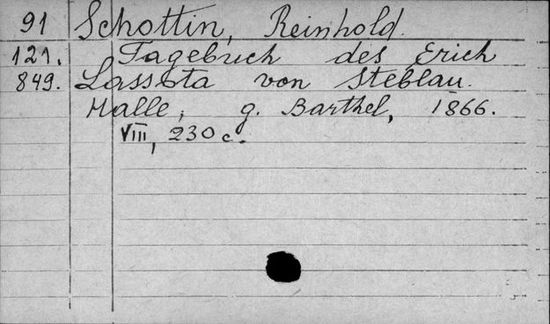 91 Schottin, Reinhold.
121. Tagebuch des Erich
849. Lassota von Steblau.
Halle, g. Barthel, 1866.
VIII, 230 c.